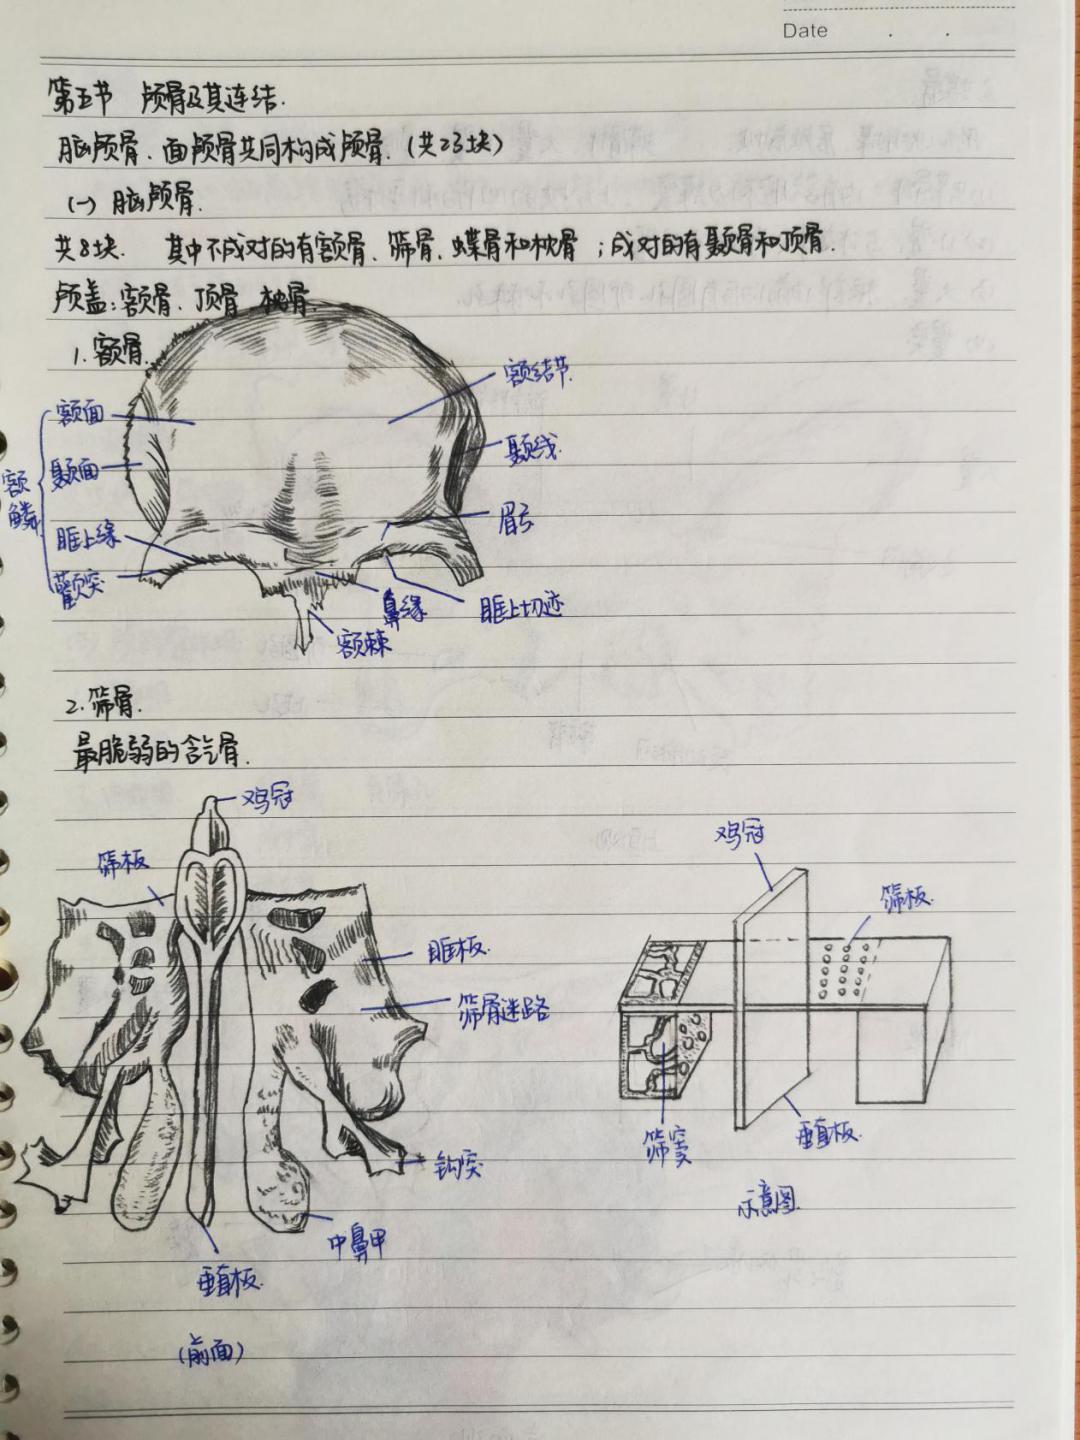 Date . .
第五节 颅骨及其连结.
脑颅骨、面颅骨共同构成颅骨.(共23块)
(一) 脑颅骨.
共8块. 其中不成对的有额骨、筛骨、蝶骨和枕骨;成对的有颞骨和顶骨.
颅盖:额骨、顶骨 枕骨.
1. 额骨.
额结节.
额面
颞线.
颞面
额鳞
眉弓
眶上缘
颧突
鼻缘
眶上切迹
额棘
2. 筛骨.
最脆弱的含气骨.
鸡冠
筛板
眶板.
筛骨迷路
钩突
中鼻甲
垂直板.
(前面)
鸡冠
筛板.
筛窦
垂直板.
示意图.